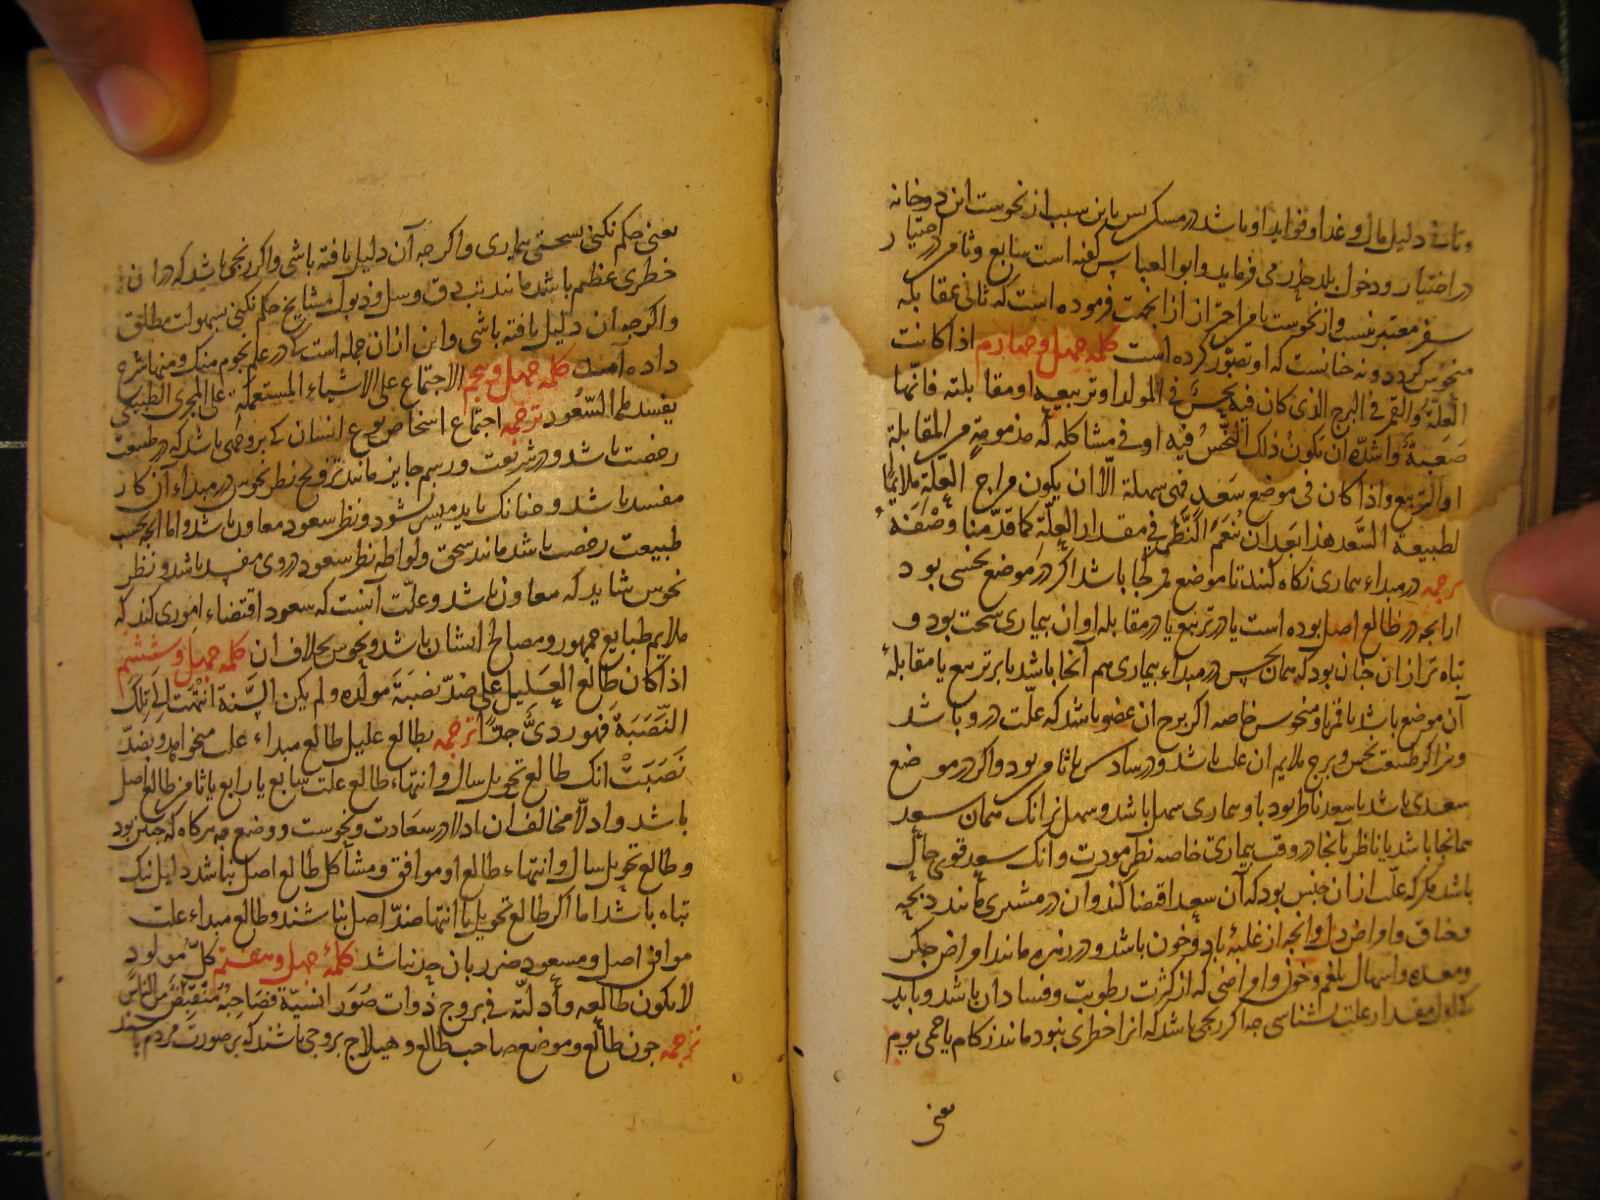 و ثانی دلیل مال و غذا و فواید او باشد در مسکن پس باین سبب از نحوست این دو خانه
در اختیار دخول بلد حذر می فرماید و ابوالعباس گفته است سابع و ثامن در اختیار
سفر معتبر نیست و از نحوست ثامن احتراز از انجهت فرموده است که ثانی بمقابله
منحوس گردد و نه چنانست که او تصور کرده است کلمه چهل و چهارم اذا کانت
العلة و القمر فی البرج الذی کان فیه نحس فی المولد او تربیعه او مقابلته فانها
صعبة و اشده ان یکون ذلک النحس فیه او فی مشاکله له مذمومة من المقابلة
او التربیع و اذا کان فی موضع سعد فهی سهلة الا ان یکون مزاج العلة ملایما
لطبیعة السعد هذا بعد ان تنعم النظر فی مقدار العلة کما قدمنا وصفه
ترجمه در مبداء بیماری نگاه کنند تا موضع قمر کجا باشد اگر در موضع نحسی بود
از آنچه در طالع اصل بوده است یا در تربیع یا در مقابله او آن بیماری سخت بود و
تباه تر از آن چنان بود که همان نحس در مبداء بیماری هم آنجا باشد یا بر تربیع یا مقابله
آن موضع باشد یا قمر با و منحوس خاصه اگر برج آن عضو باشد که علت درو باشد
و نیز اگر طبیعت نحس و برج ملایم آن علت باشد و در سادس یا ثامن بود و اگر در موضع
سعدی باشد یا سعد ناظر بود باو بیماری سهل باشد و سهل تر انک همان سعد
همانجا باشد یا ناظر بانجا در وقت بیماری خاصه نظر مودت و انک سعد قوی حال
باشد مگر که علت از آن جنس بود که آن سعد اقتضا کند و آن در مشتری مانند ذبحه
و خناق و امراض دل و انچه از غلبه باد و خون باشد و در زهره مانند امراض جگر
و معده و اسهال بلغم و خون و امراضی که از کثرت رطوبت و فساد آن باشد و باید
که اول مقدار علت بشناسی چه اگر رنجی باشد که انرا خطری نبود مانند زکام یا حمی یوم
یعنی
یعنی حکم نکنی بسختی بیماری و اگر چه آن دلیل یافته باشی و اگر رنجی باشد که در ان
خطری عظیم باشد مانند تب دق و سل و ذبول مشایخ حکم نکنی بسهولت مطلق
و اگر چه ان دلیل یافته باشی و این از ان جمله است که در علم نجوم منک و منها شرح
داده آمد کلمه چهل و پنجم الاجتماع علی الاشیاء المستعملة علی المجری الطبیعی
یفسدها السعود ترجمه اجتماع اشخاص نوع انسان که بر وجهی باشد که در طبیعت
رخصت باشد و در شریعت و رسم جایز مانند تزویج نظر نحوس در مبداء آن کار
مفسد باشد و چنانک باید میسر نشود و نظر سعود معاون باشد و اما انچه بحسب
طبیعت رخصت باشد مانند سحق و لواطه نظر سعود دروی مفسد باشد و نظر
نحوس شاید که معاون باشد و علت آنست که سعود اقتضاء اموری کند که
ملایم طبایع جمهور و مصالح ایشان باشد و نحوس بخلاف ان کلمه چهل و ششم
اذا کان طالع العلیل علی ضد نصبة مولده و لم یکن السنة انتهت الی تلک
النصبة فهو ردئ جدا ترجمه بطالع علیل طالع مبداء علت میخواهد و بضد
نصبت انک طالع تحویل سال و انتهاء طالع علت سابع یا رابع یا ثامن طالع اصل
باشد و ادلا مخالف ان ادلا در سعادت و نحوست و وضع هر گاه که چنین بود
و طالع تحویل سال و انتهاء طالع او موافق و مشاکل طالع اصل نباشد دلیل نیک
تباه باشد اما اگر طالع تحویل یا انتها ضد اصل نباشند و طالع مبداء علت
موافق اصل و مسعود ضرر بان حد نباشد کلمه چهل و هفتم کل مولود
لا یکون طالعه و أدلته فی بروج ذوات صور انسیة فصاحبه منقبض من الناس
ترجمه چون طالع و موضع صاحب طالع و هیلاج بروجی باشند که بر صورت مردم باشند